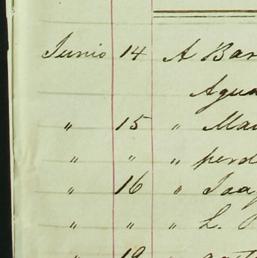 Junio 14 A Bar
Agua
" 15 " Ma
" " " perd
" 16 " Joa
" " " L.